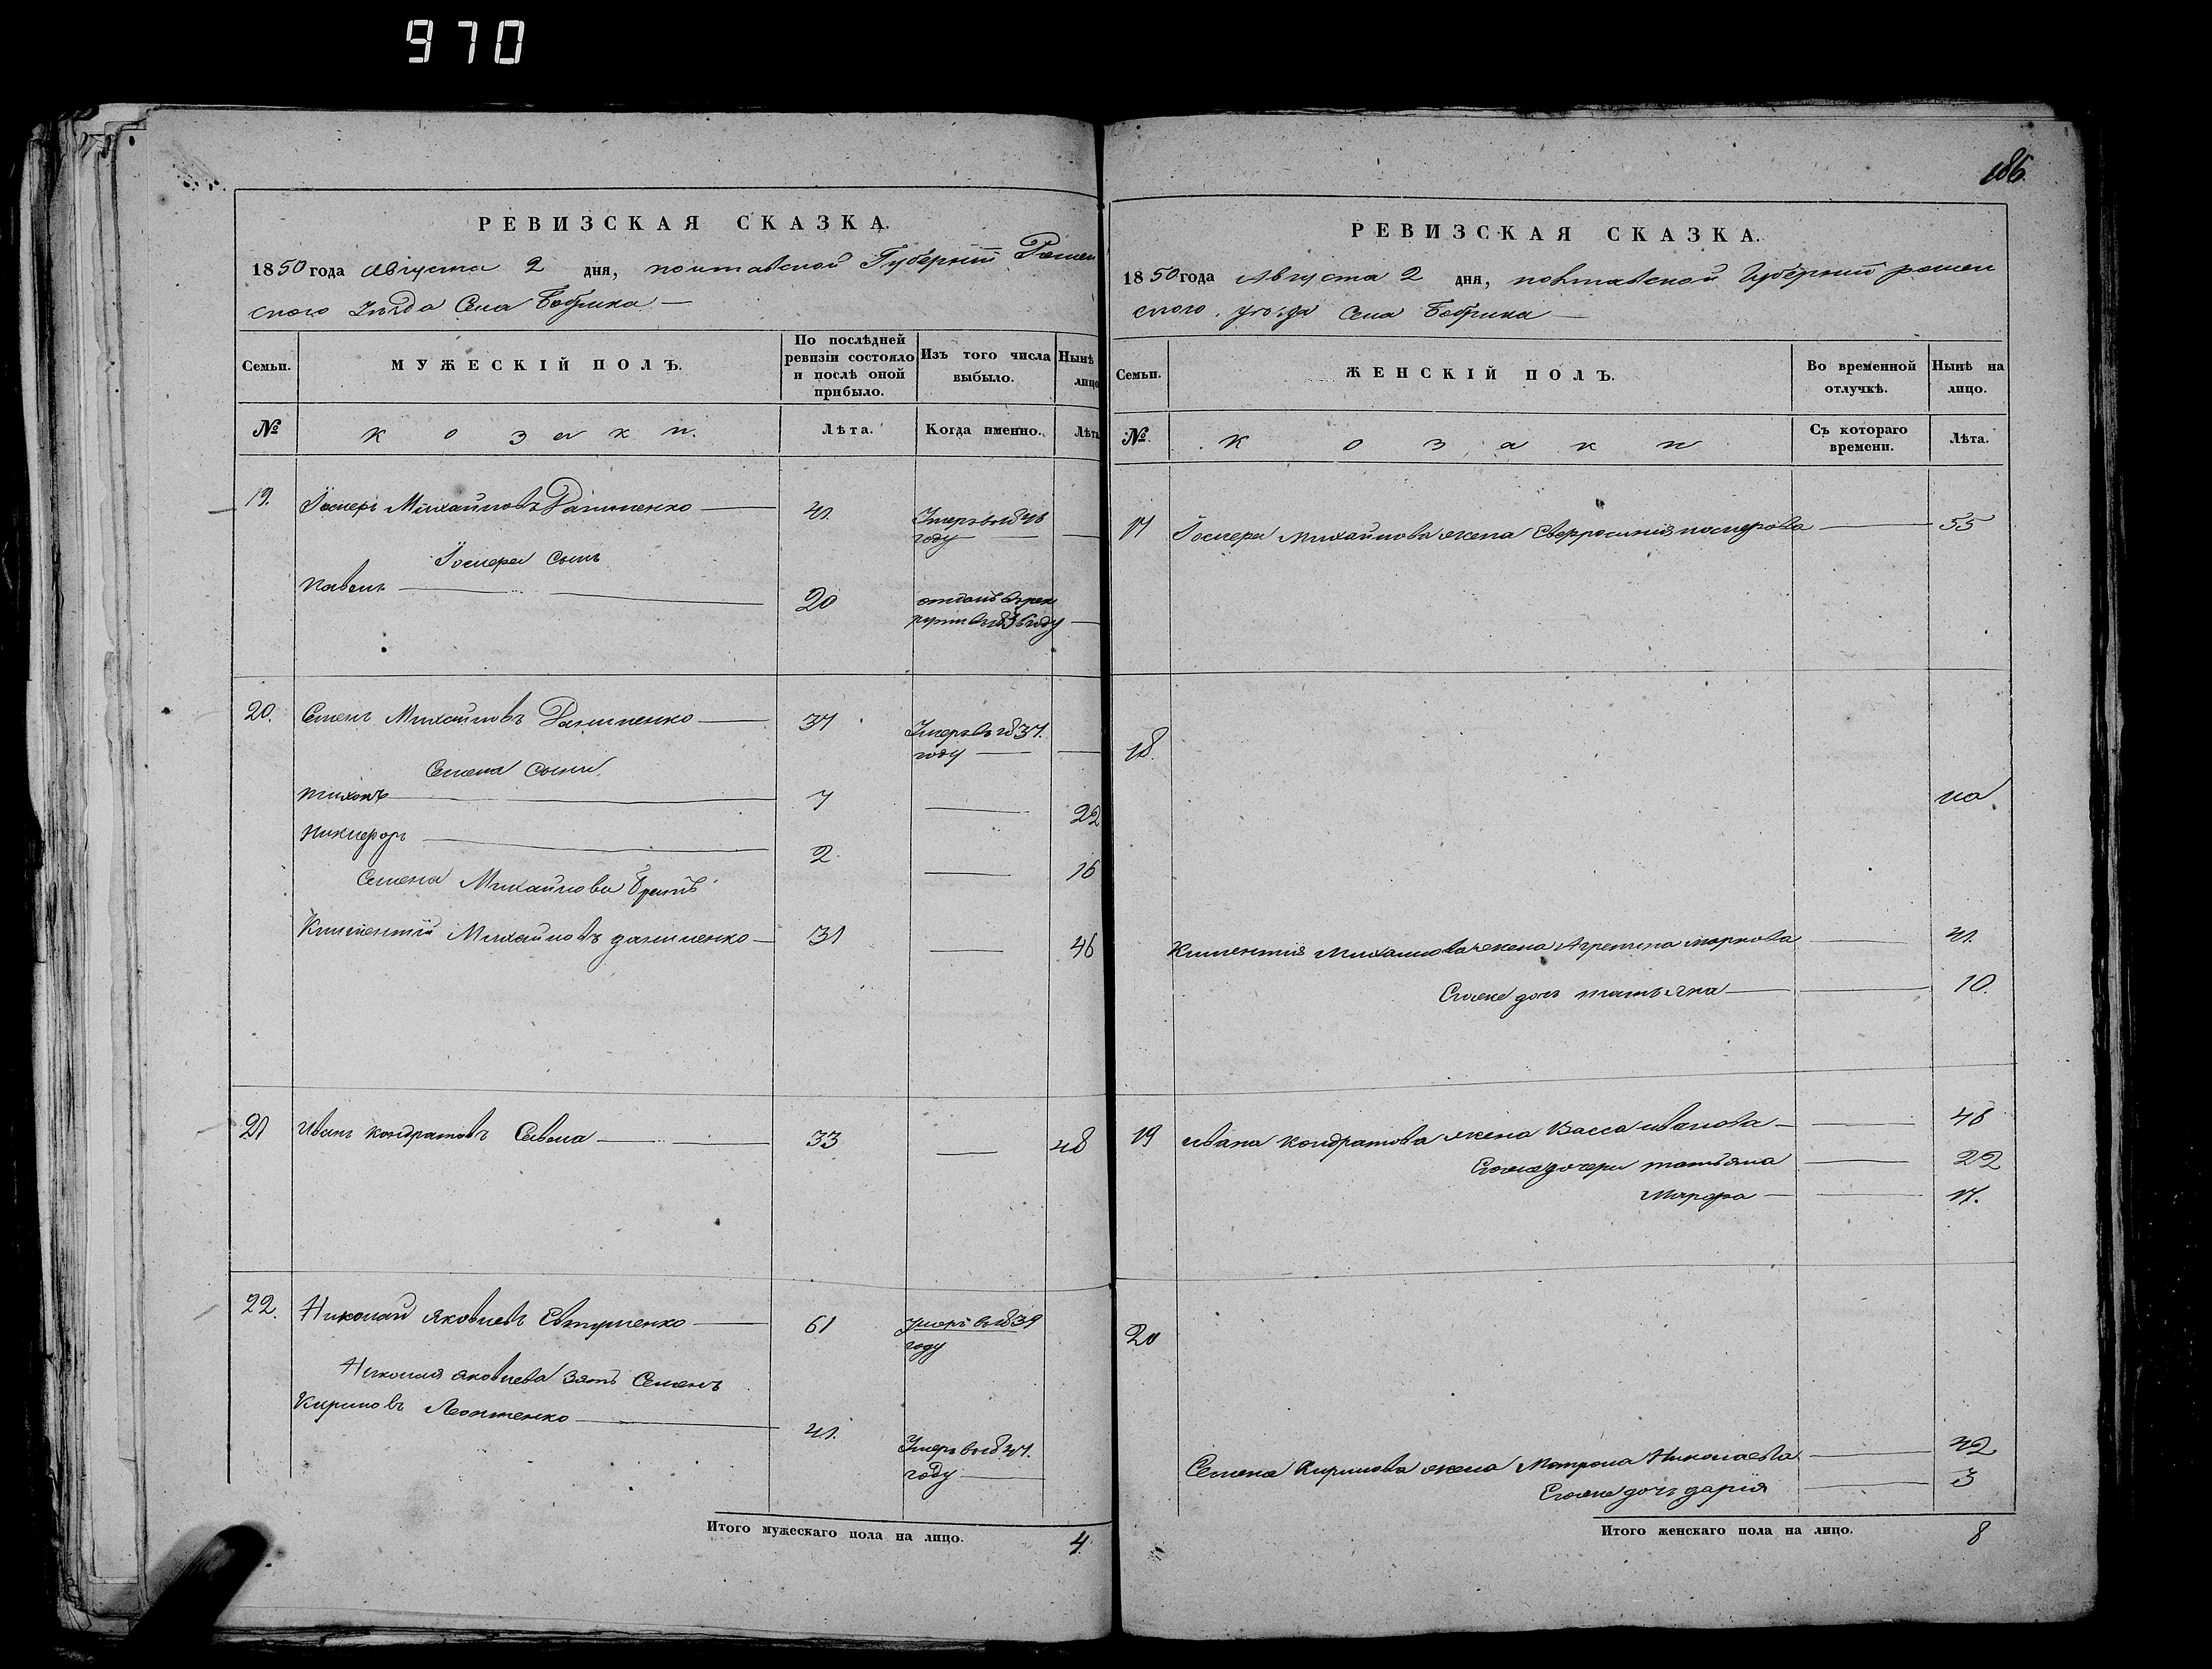 970
186
РЕВИЗСКАЯ СКАЗКА.
1850 года Августа 2 дня, полтавской Губерніи Ромен
ского Уѣзда Села Бобрика
Семьи.
МУЖЕСКІЙ ПОЛЪ.
По послѣдней ревизіи состояло и послѣ оной прибыло.
Изъ того числа выбыло.
Нынѣ лицо
№
Козаки.
Лѣта.
Когда именно.
Лѣта
19. Михайловъ Даниленко 41. Умеръ в году
сынъ
Павелъ 20 отданъ в рек
руты в году
20. Семенъ Михайловъ Даниленко 37 Умеръ въ 1837.
году
Семена сыны
тихонъ 7 22
Никифоръ 2 16
Семена Михайлова братъ
Климентий Михайловъ даниленко 31 46
21 Иванъ кондратовъ Савела 33 48
22. Николай Яковлевъ Евтушенко 61 умеръ в 1839
году
Николая яковлева зять Семенъ
Кириловъ 41. Умеръ в 1847.
году
Итого мужескаго пола на лицо. 4
РЕВИЗСКАЯ СКАЗКА.
1850 года Августа 2 дня, полтавской Губерніи ромен
ского уѣзда Села Бобрика
Семьи.
ЖЕНСКІЙ ПОЛЪ.
Во временной отлучкѣ.
Нынѣ на лицо.
№
Козаки
Съ котораго времени.
Лѣта.
17 Михайлова жена 55
18.
Климентия Михайлова жена Агрепина маркова 41.
Егоже дочь татьяна 10.
19 ивана кондратова жена Васса иванова 46
Егоже дочери татьяна 22
Марфа 17.
20
Семена Кирилова жена Матрона Николаева 42
Егоже дочь дария 3
Итого женскаго пола на лицо. 8